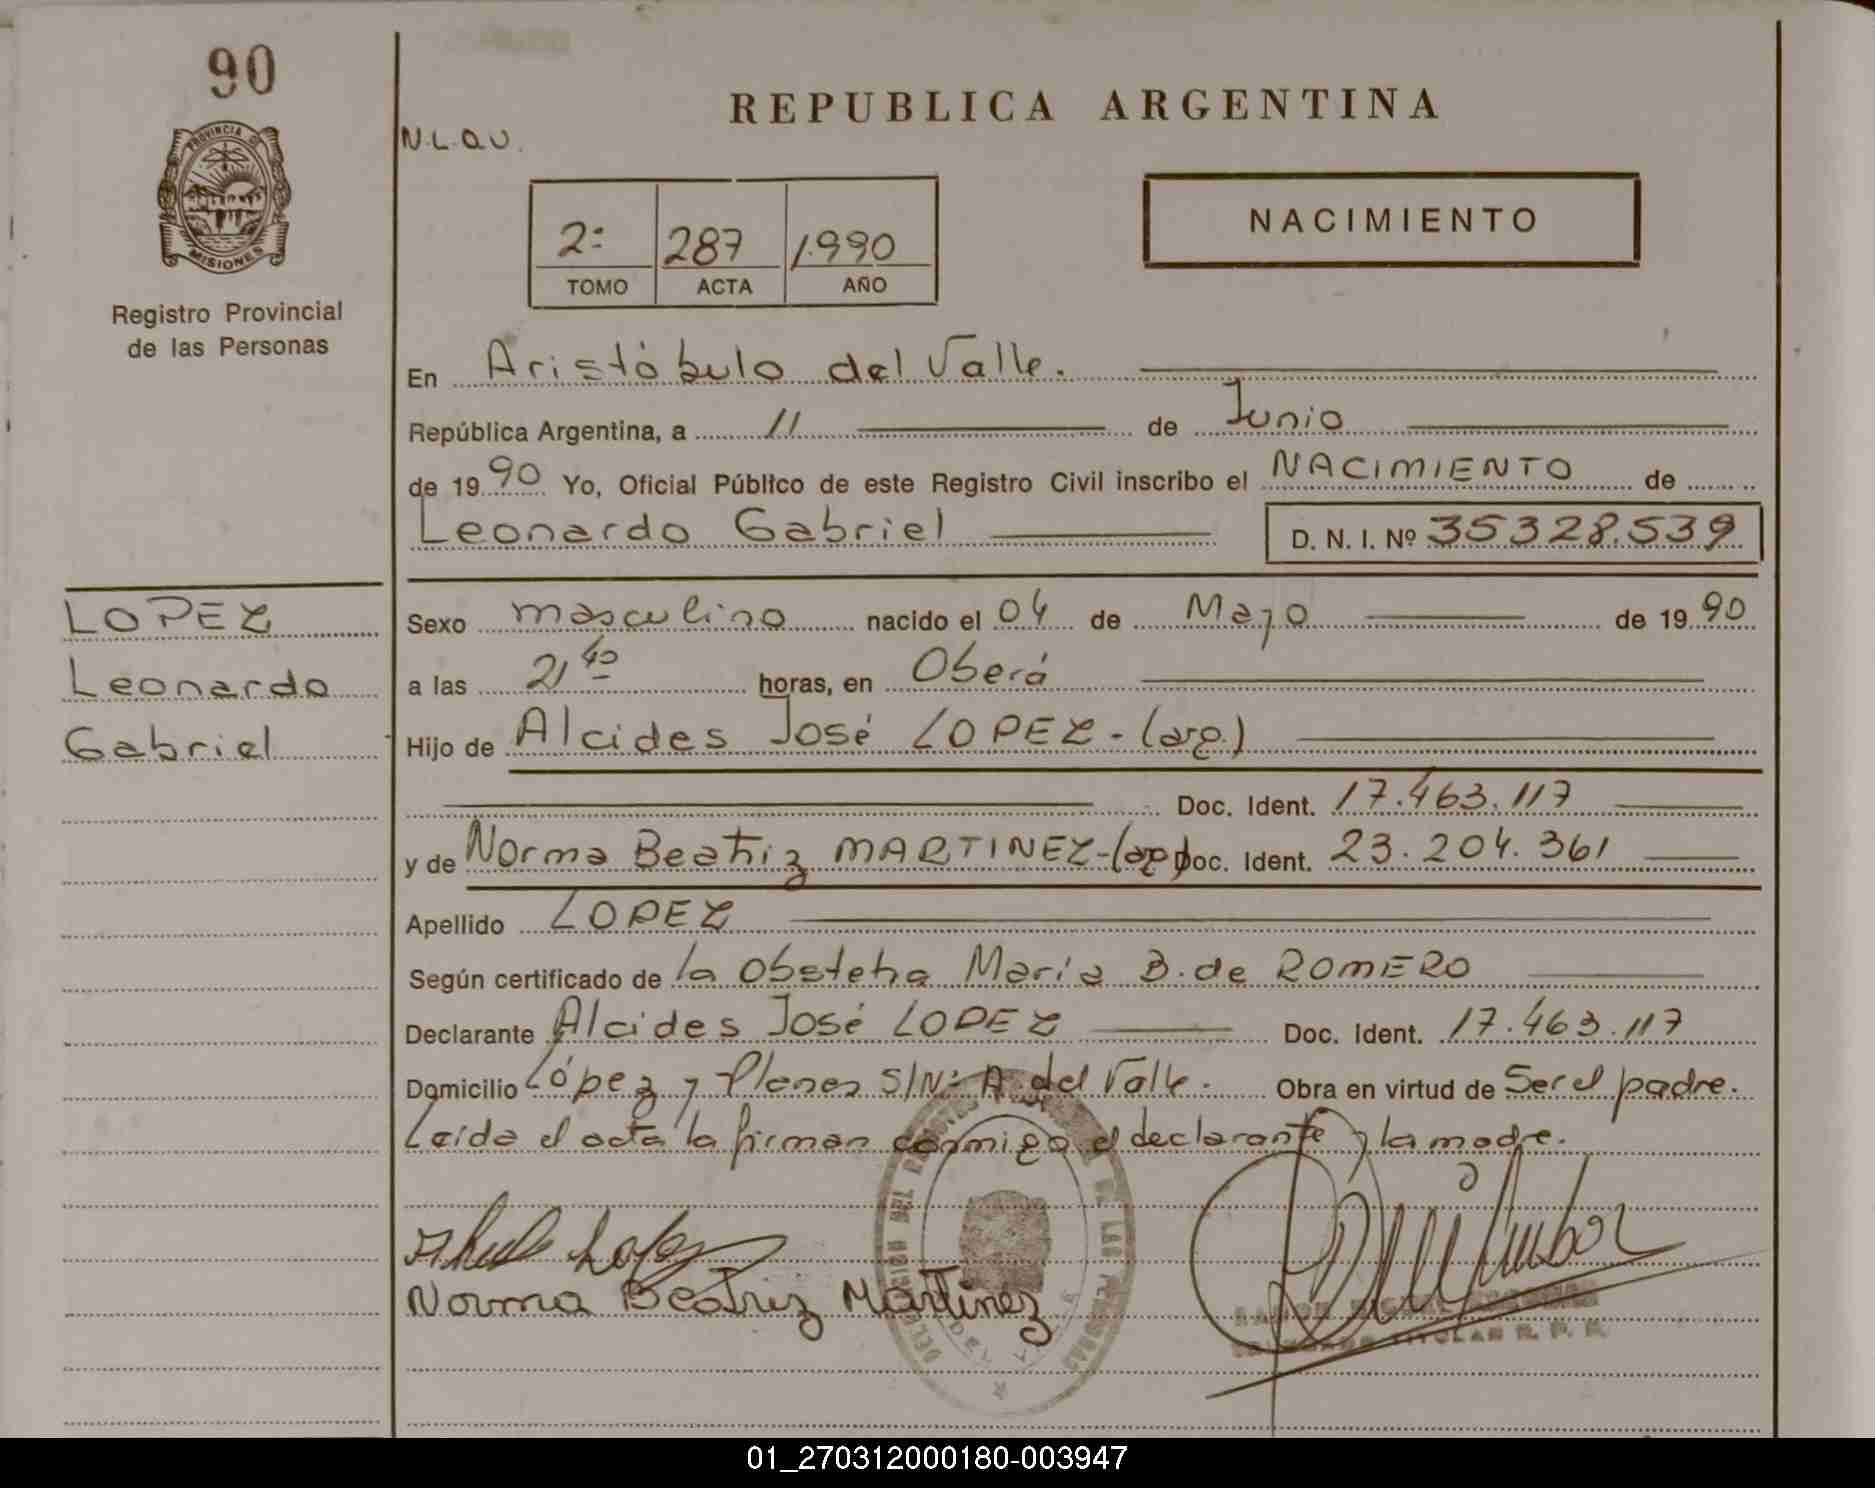 90
PROVINCIA DE
MISIONES
Registro Provincial
de las Personas
LOPEZ
Leonardo
Gabriel
REPUBLICA ARGENTINA
N.L.Q.U.
2º 287 1.990
TOMO ACTA AÑO
NACIMIENTO
En Aristóbulo del Valle.
República Argentina, a 11 de Junio
de 1990 Yo, Oficial Público de este Registro Civil inscribo el NACIMIENTO de
Leonardo Gabriel D. N. I. Nº 35328.539
Sexo masculino nacido el 04 de Mayo de 1990
a las 21 40 horas, en Oberá
Hijo de Alcides José LOPEZ - (arg.)
Doc. Ident. 17.463.117
y de Norma Beatriz MARTINEZ - (arg.) Doc. Ident. 23.204.361
Apellido LOPEZ
Según certificado de la Obstetra María B. de ROMERO
Declarante Alcides José LOPEZ Doc. Ident. 17.463.117
Domicilio López y Planes S/Nº A. del Valle. Obra en virtud de Ser el padre.
Leída el acta la firman conmigo el declarante y la madre.
Lopez
Norma Beatriz Martinez
TITULAR R. P. P.
01_270312000180-003947